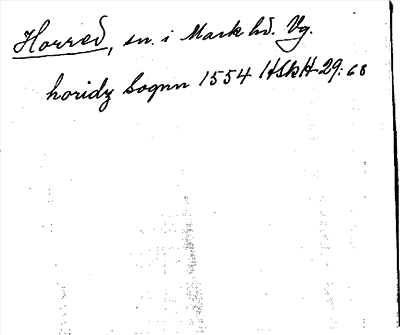 Horred, sn. i Mark hd. Vg.
horidz sognn 1554 HSkH 29:68